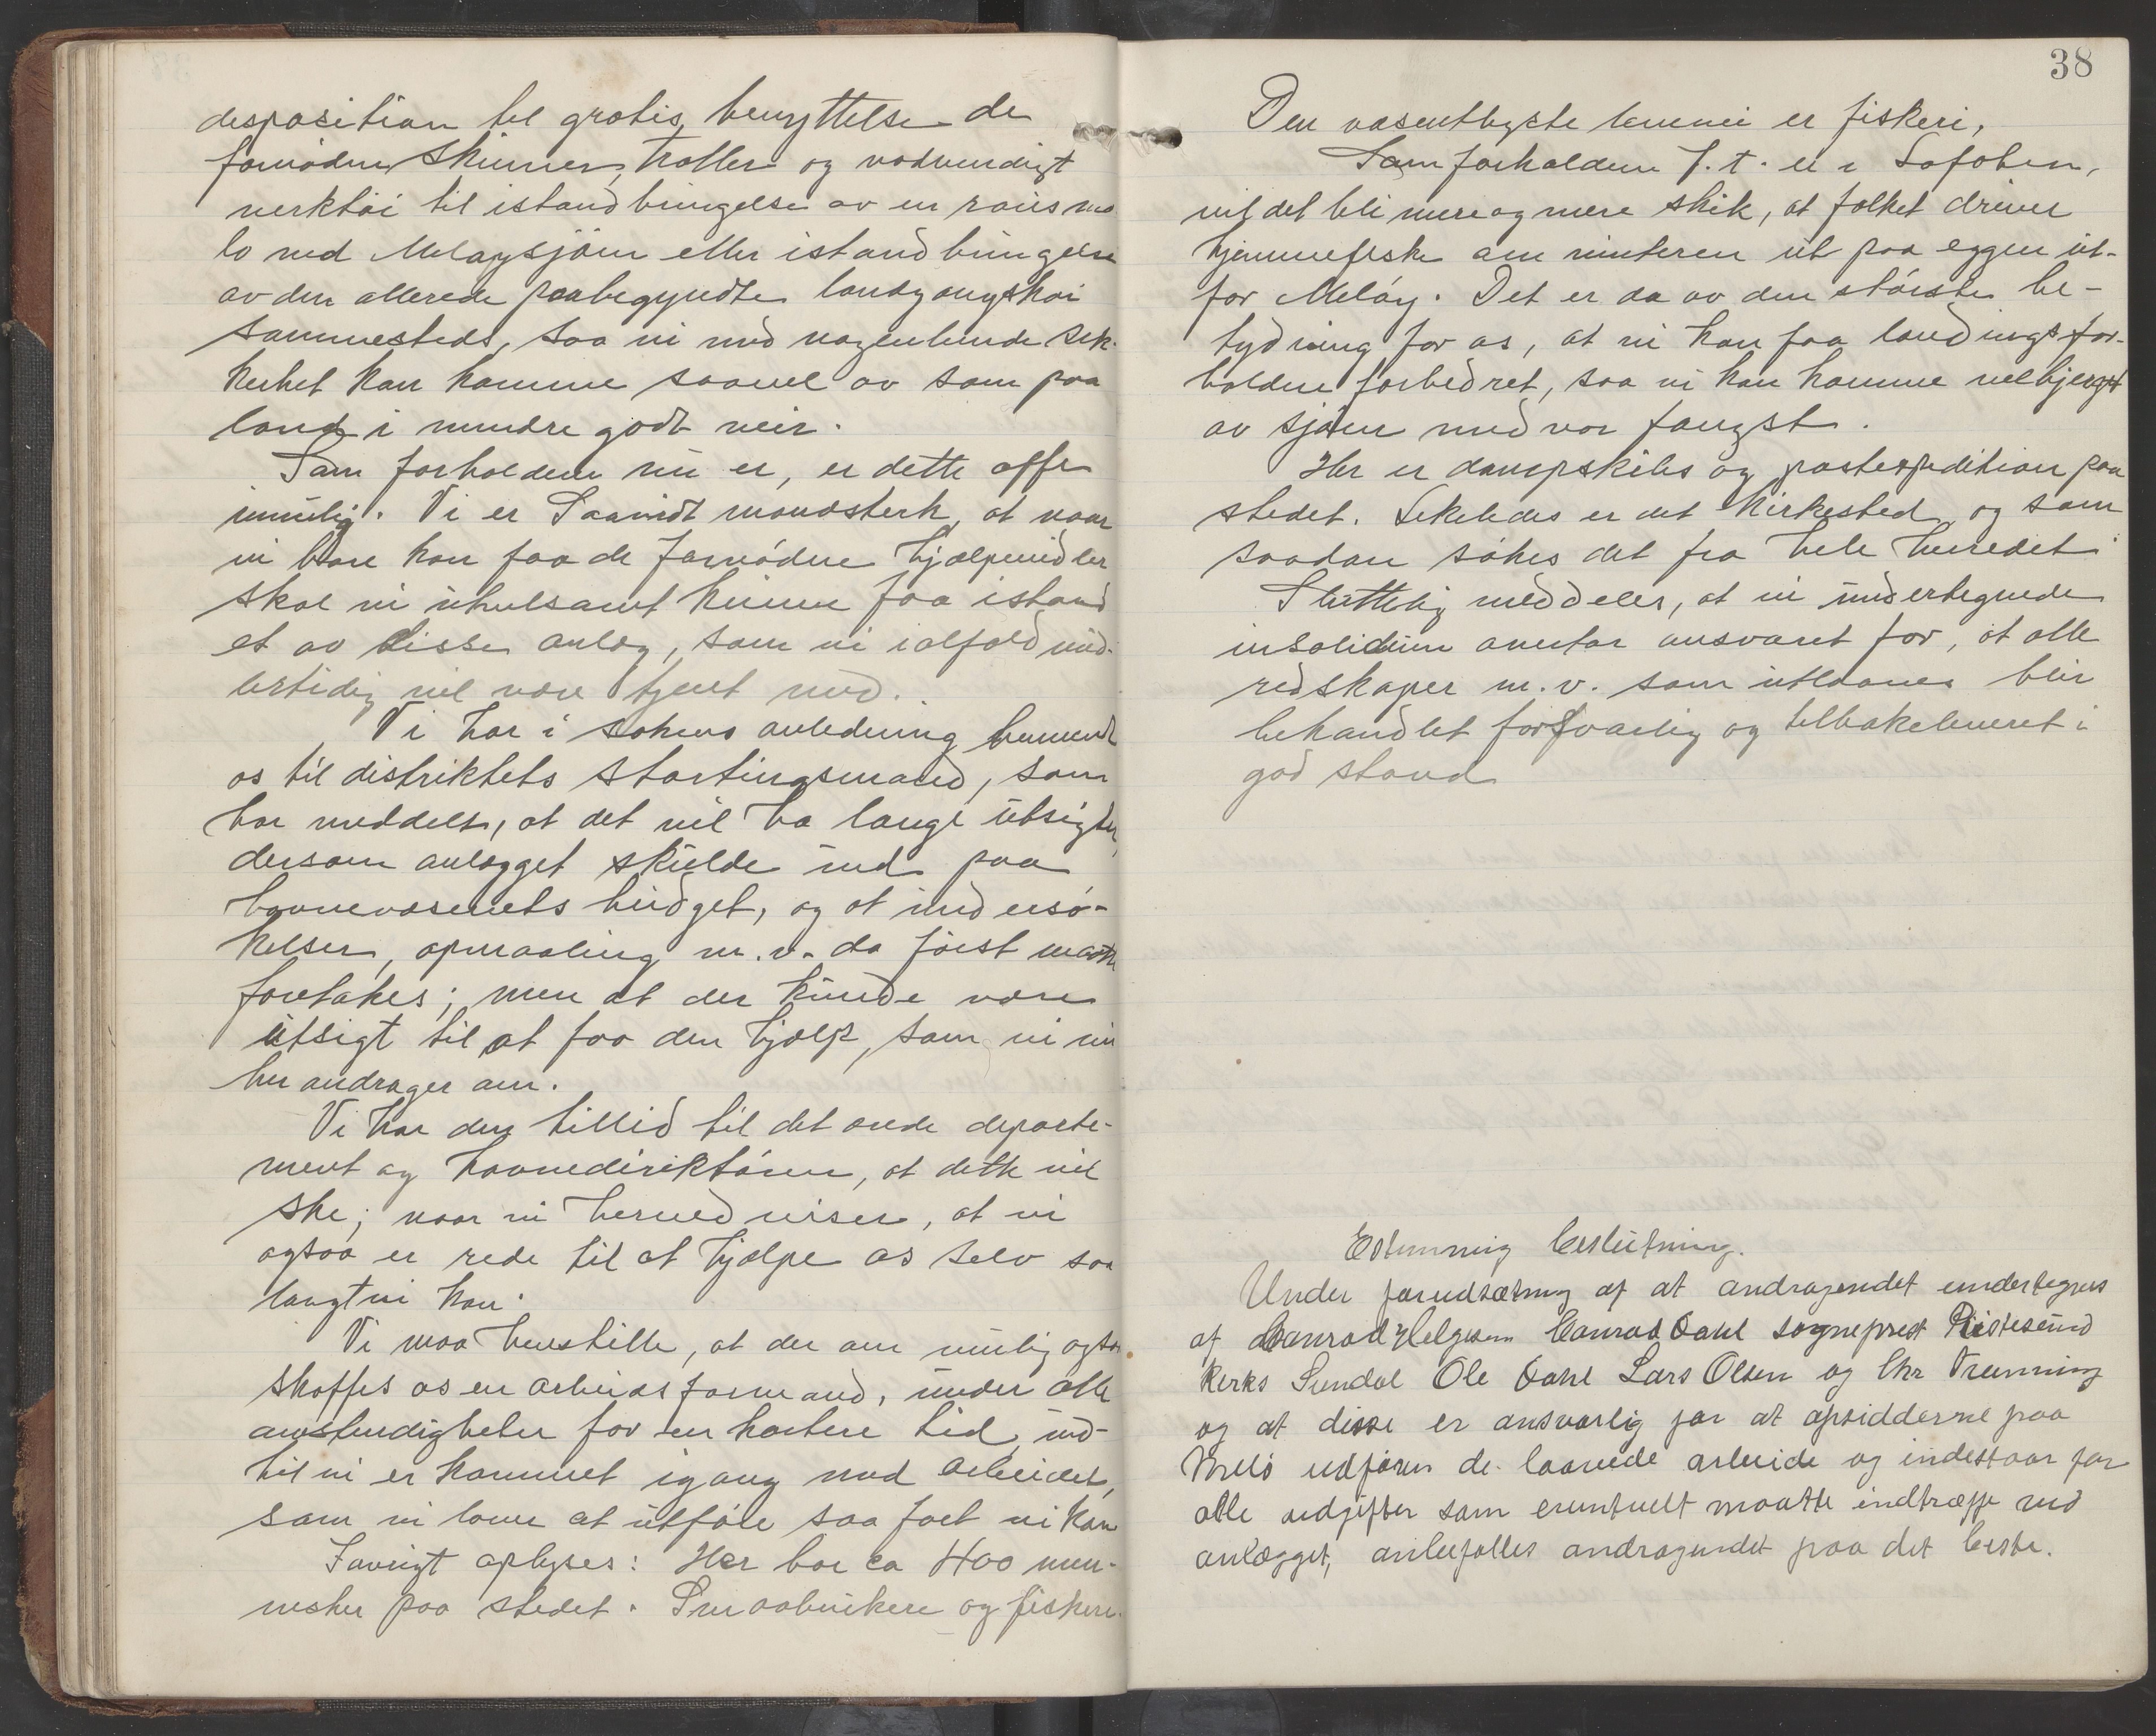 desposition til gratis benyttelse de
fornødne skinner, traller og nødvendigt
verktøi til istandbringelse av en røismo
lo ved Meløysjøen eller istandbringelse
av den allerede paabegyndte landgangskai
sammesteds, saa vi med nogenlunde sik-
kerhet kan komme saavel av som paa
land i mindre godt veir.
Som forholdene nu er, er dette ofte
umulig. Vi er saavidt mandsterk, at naar
vi bare kan faa de fornødne hjælpemidler
skal vi uhulsamt kunne faa istand
et av disse anlæg, som vi ialfald mid-
lertidig vil være tjent med.
Vi har i sakens anledning henvendt
os til distriktets stortingsmand, som
har meddelt, at det vil ha lange utsigter,
dersom anlægget skulde ind paa
havnevæsenets budget, og at undersø-
kelser, opmaaling m.v. da først maatte
foretakes; men at der kunde være
utsigt til at faa den hjælp, som vi nu
her andrager om.
Vi har den tillid til det ærede departe-
ment og havnedirektøren, at dette vil
ske; naar vi herved viser, at vi
ogsaa er rede til at hjælpe os selv saa
langt vi kan.
Vi maa henstille, at der om mulig ogsaa
skaffes os en arbeidsformand, under alle
omstendigheter for en kortere tid, ind-
til vi er kommet igang med arbeidet,
som vi lover at utføre saa fort vi kan
Iøvrigt oplyses: Her bor ca 400 men-
nesker paa stedet. Smaabrukere og fiskere.
38
Den væsentligste levevei er fiskeri,
Som forholdene f.t. er i Lofoten,
vil det bli mere og mere skik, at folket driver
hjemmefiske om vinteren ut paa eggen ut-
for Meløy. Det er da av den største be-
tydning for os, at vi kan faa landingsfor-
holdene forbedret, saa vi kan komme velbjerget
av sjøen med vor fangst.
Her er dampskibs og postexpedition paa
stedet. Likeledes er det kirkested og som
saadan søkes det fra hele herredet
Sluttelig meddeles, at vi undertegnede
insolidum overtar ansvaret for, at alle
redskaper m.v. som utlaanes blir
behandlet forsvarlig og tilbakeleveret i
god stand
Enstemmig beslutning.
Under forudsætning af at andragendet undertegnes
af Conrad Helgesen Conrad Dahl sogneprest Ristesund
Kerks Sundal Ole Dahl Lars Olsen og Chr Trunning
og at disse er ansvarlig for at opsidderne paa
Melø udfører de lovede arbeide og indestaar for
alle udgifter som eventuelt maatte indtræffe ved
anlægget, anbefalles andragendet paa det beste.